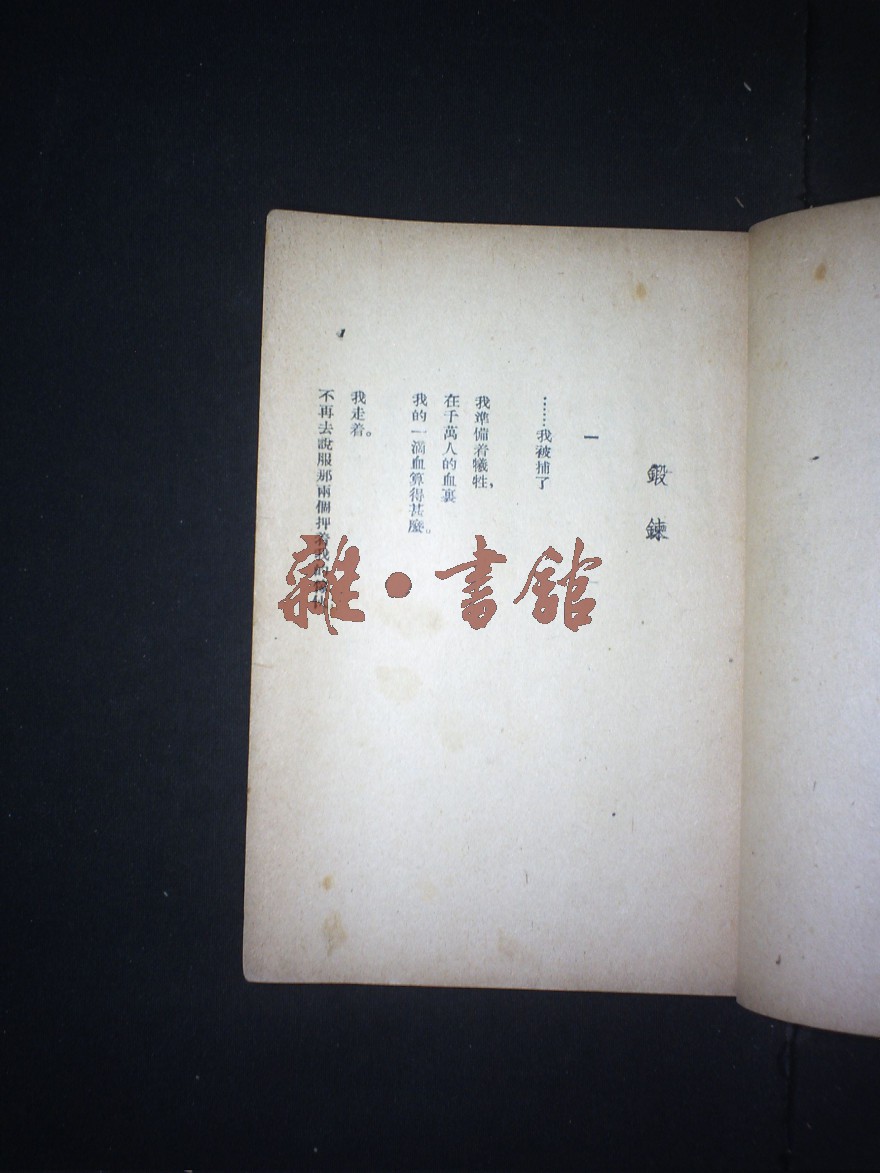 鍛鍊
一
……我被捕了
我準備着犧牲，
在千萬人的血裏
我的一滴血算得甚麼。
我走着。
不再去說服那兩個押着我
雜·書館